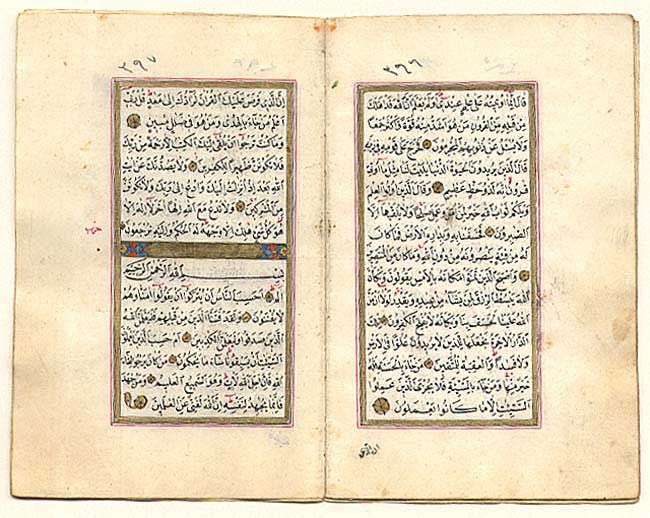 ٣٩٦
قَالَ اِنَّمَا اُوتِيتُهُ عَلٰى عِلْمٍ عِنْدِى اَوَلَمْ يَعْلَمْ اَنَّ اللّٰهَ قَدْ اَهْلَكَ
مِنْ قَبْلِهِ مِنَ الْقُرُونِ مَنْ هُوَ اَشَدُّ مِنْهُ قُوَّةً وَاَكْثَرُ جَمْعًا
وَلَا يُسْئَلُ عَنْ ذُنُوبِهِمُ الْمُجْرِمُونَ فَخَرَجَ عَلٰى قَوْمِهِ فِى زِينَتِهِ
قَالَ الَّذِينَ يُرِيدُونَ الْحَيٰوةَ الدُّنْيَا يَالَيْتَ لَنَا مِثْلَ مَا اُوتِىَ
قَارُونُ اِنَّهُ لَذُو حَظٍّ عَظِيمٍ وَقَالَ الَّذِينَ اُوتُوا الْعِلْمَ
وَيْلَكُمْ ثَوَابُ اللّٰهِ خَيْرٌ لِمَنْ اٰمَنَ وَعَمِلَ صَالِحًا وَلَا يُلَقّٰيهَا اِلَّا
الصَّابِرُونَ فَخَسَفْنَا بِهِ وَبِدَارِهِ الْاَرْضَ فَمَا كَانَ
لَهُ مِنْ فِئَةٍ يَنْصُرُونَهُ مِنْ دُونِ اللّٰهِ وَمَا كَانَ مِنَ الْمُنْتَصِرِينَ
وَاَصْبَحَ الَّذِينَ تَمَنَّوْا مَكَانَهُ بِالْاَمْسِ يَقُولُونَ وَيْكَاَنَّ
اللّٰهَ يَبْسُطُ الرِّزْقَ لِمَنْ يَشَاءُ مِنْ عِبَادِهِ وَيَقْدِرُ لَوْلَا اَنْ مَنَّ
اللّٰهُ عَلَيْنَا لَخَسَفَ بِنَا وَيْكَاَنَّهُ لَا يُفْلِحُ الْكَافِرُونَ تِلْكَ
الدَّارُ الْاٰخِرَةُ نَجْعَلُهَا لِلَّذِينَ لَا يُرِيدُونَ عُلُوًّا فِى الْاَرْضِ
وَلَا فَسَادًا وَالْعَاقِبَةُ لِلْمُتَّقِينَ مَنْ جَاءَ بِالْحَسَنَةِ فَلَهُ
خَيْرٌ مِنْهَا وَمَنْ جَاءَ بِالسَّيِّئَةِ فَلَا يُجْزَى الَّذِينَ عَمِلُوا
السَّيِّئَاتِ اِلَّا مَا كَانُوا يَعْمَلُونَ
ان الذى
٣٩٧
اِنَّ الَّذِى فَرَضَ عَلَيْكَ الْقُرْاٰنَ لَرَادُّكَ اِلٰى مَعَادٍ قُلْ رَبِّى
اَعْلَمُ مَنْ جَاءَ بِالْهُدٰى وَمَنْ هُوَ فِى ضَلَالٍ مُبِينٍ
وَمَا كُنْتَ تَرْجُوا اَنْ يُلْقٰى اِلَيْكَ الْكِتَابُ اِلَّا رَحْمَةً مِنْ رَبِّكَ
فَلَا تَكُونَنَّ ظَهِيرًا لِلْكَافِرِينَ وَلَا يَصُدُّنَّكَ عَنْ اٰيَاتِ
اللّٰهِ بَعْدَ اِذْ اُنْزِلَتْ اِلَيْكَ وَادْعُ اِلٰى رَبِّكَ وَلَا تَكُونَنَّ
مِنَ الْمُشْرِكِينَ وَلَا تَدْعُ مَعَ اللّٰهِ اِلٰهًا اٰخَرَ لَا اِلٰهَ اِلَّا
هُوَ كُلُّ شَىْءٍ هَالِكٌ اِلَّا وَجْهَهُ لَهُ الْحُكْمُ وَاِلَيْهِ تُرْجَعُونَ
بِسْمِ اللّٰهِ الرَّحْمٰنِ الرَّحِيمِ
الٓمٓ اَحَسِبَ النَّاسُ اَنْ يُتْرَكُوا اَنْ يَقُولُوا اٰمَنَّا وَهُمْ
لَا يُفْتَنُونَ وَلَقَدْ فَتَنَّا الَّذِينَ مِنْ قَبْلِهِمْ فَلَيَعْلَمَنَّ اللّٰهُ
الَّذِينَ صَدَقُوا وَلَيَعْلَمَنَّ الْكَاذِبِينَ اَمْ حَسِبَ الَّذِينَ يَعْمَلُونَ
السَّيِّئَاتِ اَنْ يَسْبِقُونَا سَاءَ مَا يَحْكُمُونَ مَنْ كَانَ يَرْجُوا لِقَاءَ
اللّٰهِ فَاِنَّ اَجَلَ اللّٰهِ لَاٰتٍ وَهُوَ السَّمِيعُ الْعَلِيمُ وَمَنْ جَاهَدَ
فَاِنَّمَا يُجَاهِدُ لِنَفْسِهِ اِنَّ اللّٰهَ لَغَنِىٌّ عَنِ الْعَالَمِينَ